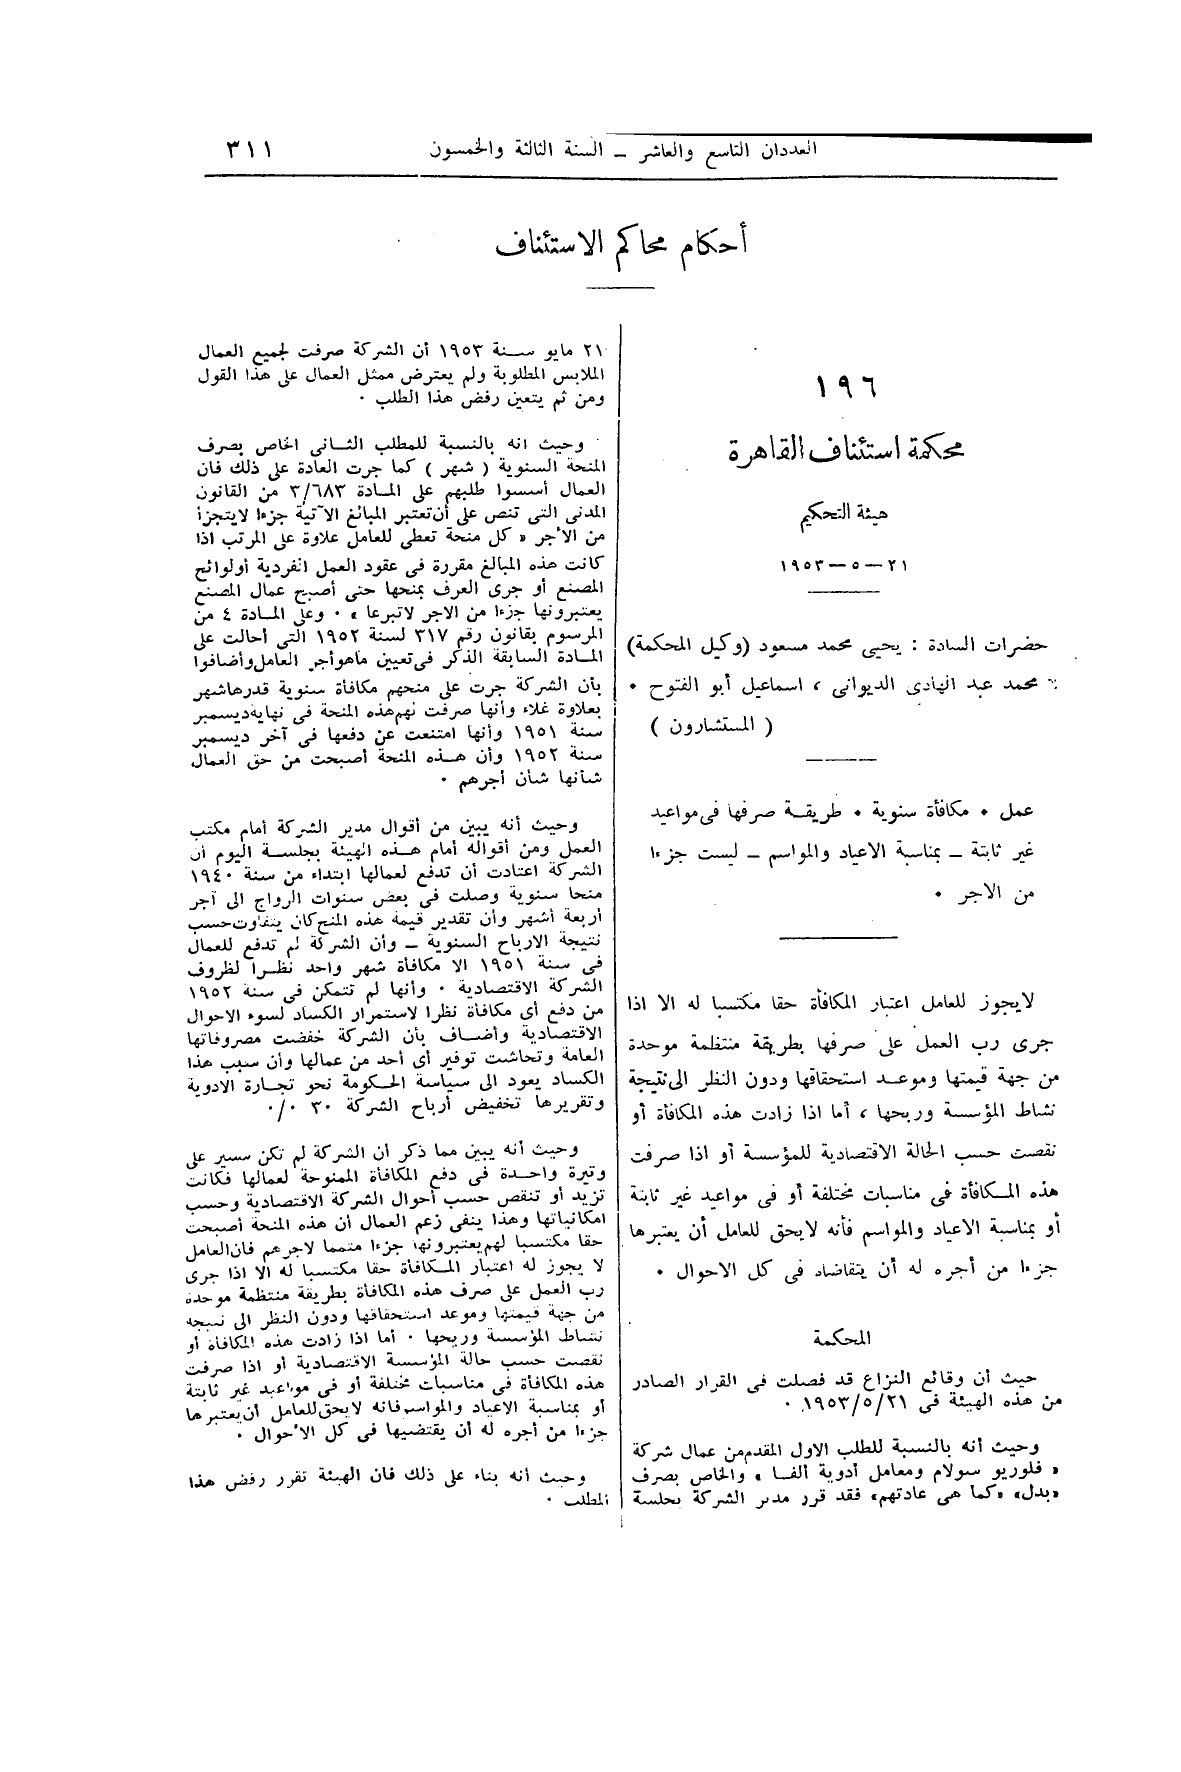 العددان التاسع والعاشر ــ السنة الثالثة والخمسون
٣١١
أحكام محاكم الاستئناف
١٩٦
محكمة استئناف القاهرة
هيئة التحكيم
٢١ – ٥ – ١٩٥٣
حضرات السادة : يحيى محمد مسعود (وكيل المحكمة)
محمد عبد الهادى الديوانى ، اسماعيل أبو الفتوح .
( المستشارون )
عمل . مكافأة سنوية . طريقة صرفها فى مواعيد
غير ثابتة ــ بمناسبة الاعياد والمواسم ــ ليست جزءا
من الاجر .
لايجوز للعامل اعتبار المكافأة حقا مكتسبا له الا اذا
جرى رب العمل على صرفها بطريقة منتظمة موحدة
من جهة قيمتها وموعد استحقاقها ودون النظر الى نتيجة
نشاط المؤسسة وربحها ، أما اذا زادت هذه المكافأة أو
نقصت حسب الحالة الاقتصادية للمؤسسة أو اذا صرفت
هذه المكافأة فى مناسبات مختلفة أو فى مواعيد غير ثابتة
أو بمناسبة الاعياد والمواسم فأنه لايحق للعامل أن يعتبرها
جزءا من أجره له أن يتقاضاه فى كل الاحوال .
المحكمة
حيث أن وقائع النزاع قد فصلت فى القرار الصادر
من هذه الهيئة فى ١٩٥٣/٥/٢١ .
وحيث أنه بالنسبة للطلب الاول المقدم من عمال شركة
« فلوريو سولام ومعامل أدوية ألفا » والخاص بصرف
«بدل» «كما هى عادتهم» فقد قرر مدير الشركة بجلسة
٢١ مايو سنة ١٩٥٣ أن الشركة صرفت لجميع العمال
الملابس المطلوبة ولم يعترض ممثل العمال على هذا القول
ومن ثم يتعين رفض هذا الطلب .
وحيث انه بالنسبة للمطلب الثانى الخاص بصرف
المنحة السنوية ( شهر ) كما جرت العادة على ذلك فان
العمال أسسوا طلبهم على المادة ٣/٦٨٣ من القانون
المدنى التى تنص على أن تعتبر المبالغ الآتية جزءا لايتجزأ
من الأجر « كل منحة تعطى للعامل علاوة على المرتب اذا
كانت هذه المبالغ مقررة فى عقود العمل انفردية أولوائح
المصنع أو جرى العرف بمنحها حتى أصبح عمال المصنع
يعتبرونها جزءا من الاجر لاتبرعا » . وعلى المادة ٤ من
المرسوم بقانون رقم ٣١٧ لسنة ١٩٥٢ التى أحالت على
المادة السابقة الذكر فى تعيين ماهو أجر العامل وأضافوا
بأن الشركة جرت على منحهم مكافأة سنوية قدرها شهر
بعلاوة غلاء وأنها صرفت لهم هذه المنحة فى نهاية ديسمبر
سنة ١٩٥١ وأنها امتنعت عن دفعها فى آخر ديسمبر
سنة ١٩٥٢ وأن هذه المنحة أصبحت من حق العمال
شأنها شأن أجرهم .
وحيث أنه يبين من أقوال مدير الشركة أمام مكتب
العمل ومن أقواله أمام هذه الهيئة بجلسة اليوم أن
الشركة اعتادت أن تدفع لعمالها ابتداء من سنة ١٩٤٠
منحا سنوية وصلت فى بعض سنوات الرواج الى آجر
أربعة أشهر وأن تقدير قيمة هذه المنح كان يتفاوت حسب
نتيجة الارباح السنوية ــ وأن الشركة لم تدفع للعمال
فى سنة ١٩٥١ الا مكافأة شهر واحد نظرا لظروف
الشركة الاقتصادية . وأنها لم تتمكن فى سنة ١٩٥٢
من دفع أى مكافأة نظرا لاستمرار الكساد لسوء الاحوال
الاقتصادية وأضاف بأن الشركة خفضت مصروفاتها
العامة وتحاشت توفير أى أحد من عمالها وأن سبب هذا
الكساد يعود الى سياسة الحكومة نحو تجارة الادوية
وتقريرها تخفيض أرباح الشركة ٣٠ ٠/٠
وحيث أنه يبين مما ذكر أن الشركة لم تكن تسير على
وتيرة واحدة فى دفع المكافأة الممنوحة لعمالها فكانت
تزيد أو تنقص حسب أحوال الشركة الاقتصادية وحسب
امكانياتها وهذا ينفى زعم العمال ان هذه المنحة أصبحت
حقا مكتسبا لهم يعتبرونها جزءا متمما لاجرهم فان العامل
لا يجوز له اعتبار المكافأة حقا مكتسبا له الا اذا جرى
رب العمل على صرف هذه المكافأة بطريقة منتظمة موحدة
من جهة قيمتها وموعد استحقاقها ودون النظر الى نتيجة
نشاط المؤسسة وربحها . أما اذا زادت هذه المكافأة أو
نقصت حسب حالة المؤسسة الاقتصادية أو اذا صرفت
هذه المكافأة فى مناسبات مختلفة أو فى مواعيد غير ثابتة
أو بمناسبة الاعياد والمواسم فانه لايحق للعامل أن يعتبرها
جزءا من أجره له أن يقتضيها فى كل الأحوال .
وحيث أنه بناء على ذلك فان الهيئة تقرر رفض هذا
المطلب .